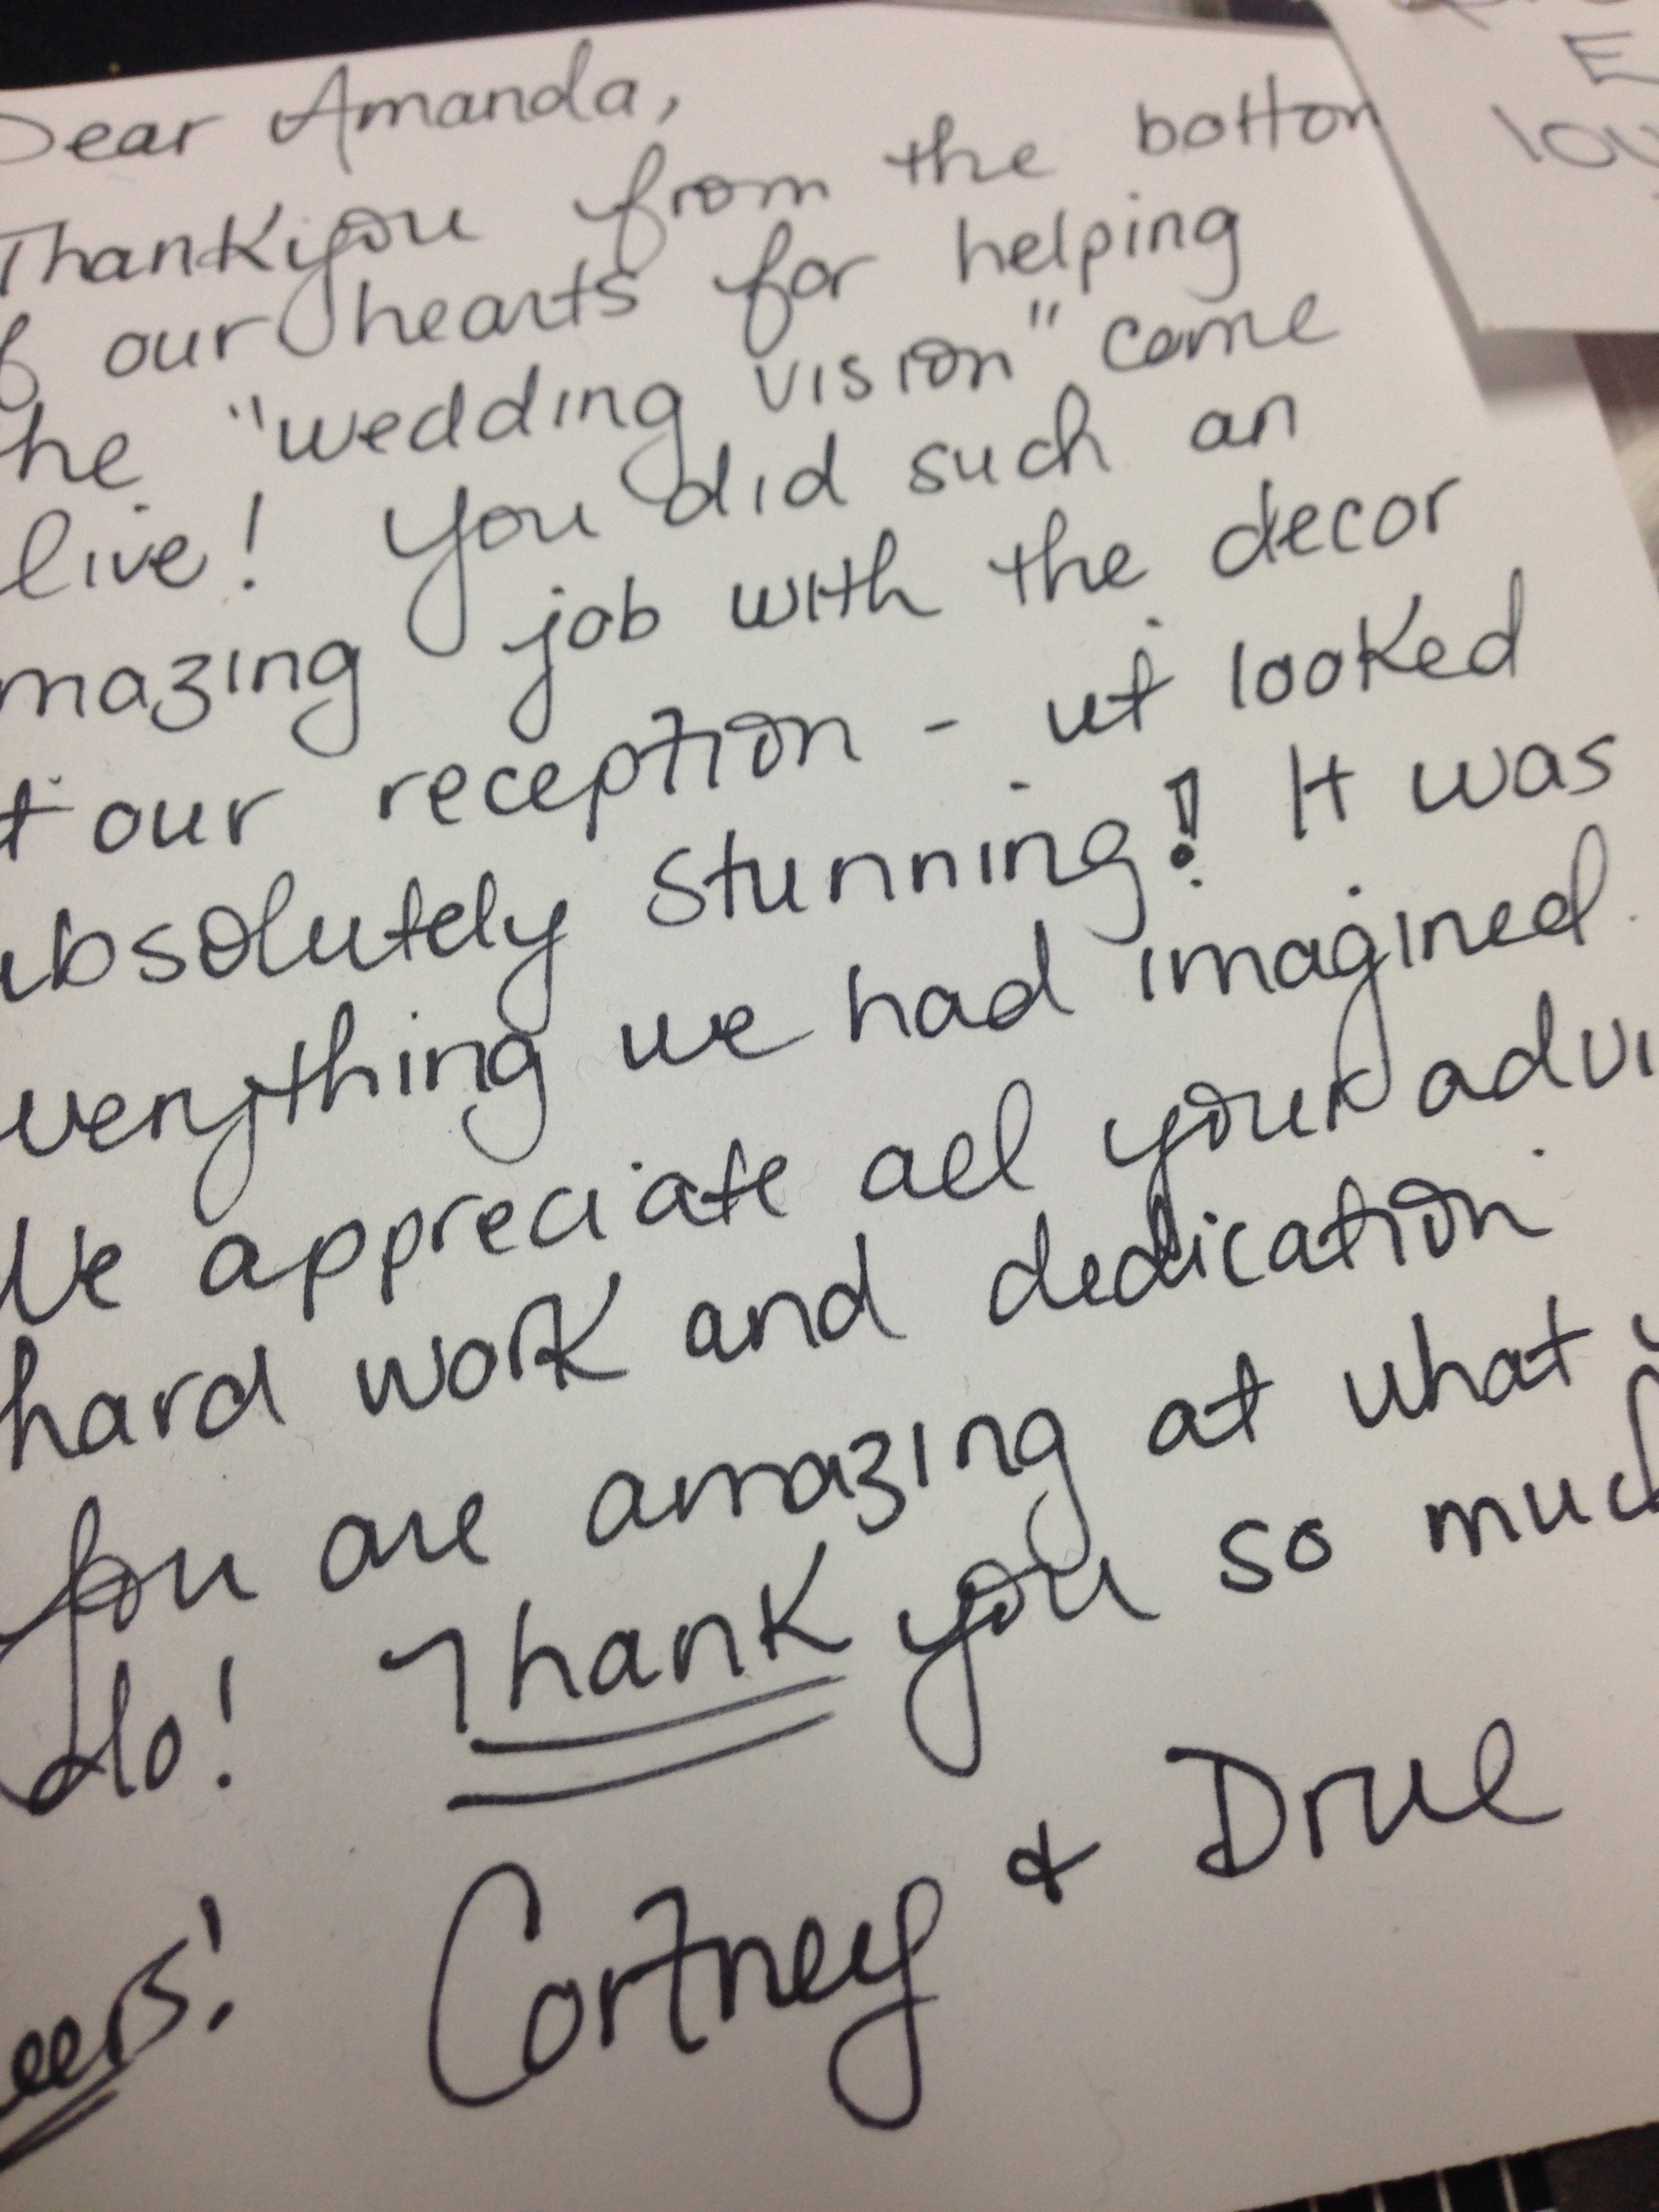 Dear Amanda,
Thankyou from the bottom
f our hearts for helping
he "wedding vision" come
live! You did such an
mazing job with the decor
t our reception - it looked
absolutely stunning! It was
verything we had imagined.
We appreciate all your advi
hard work and dedication.
You are amazing at what y
do! Thank you so much
eers! Cortney & Drue
E
lou